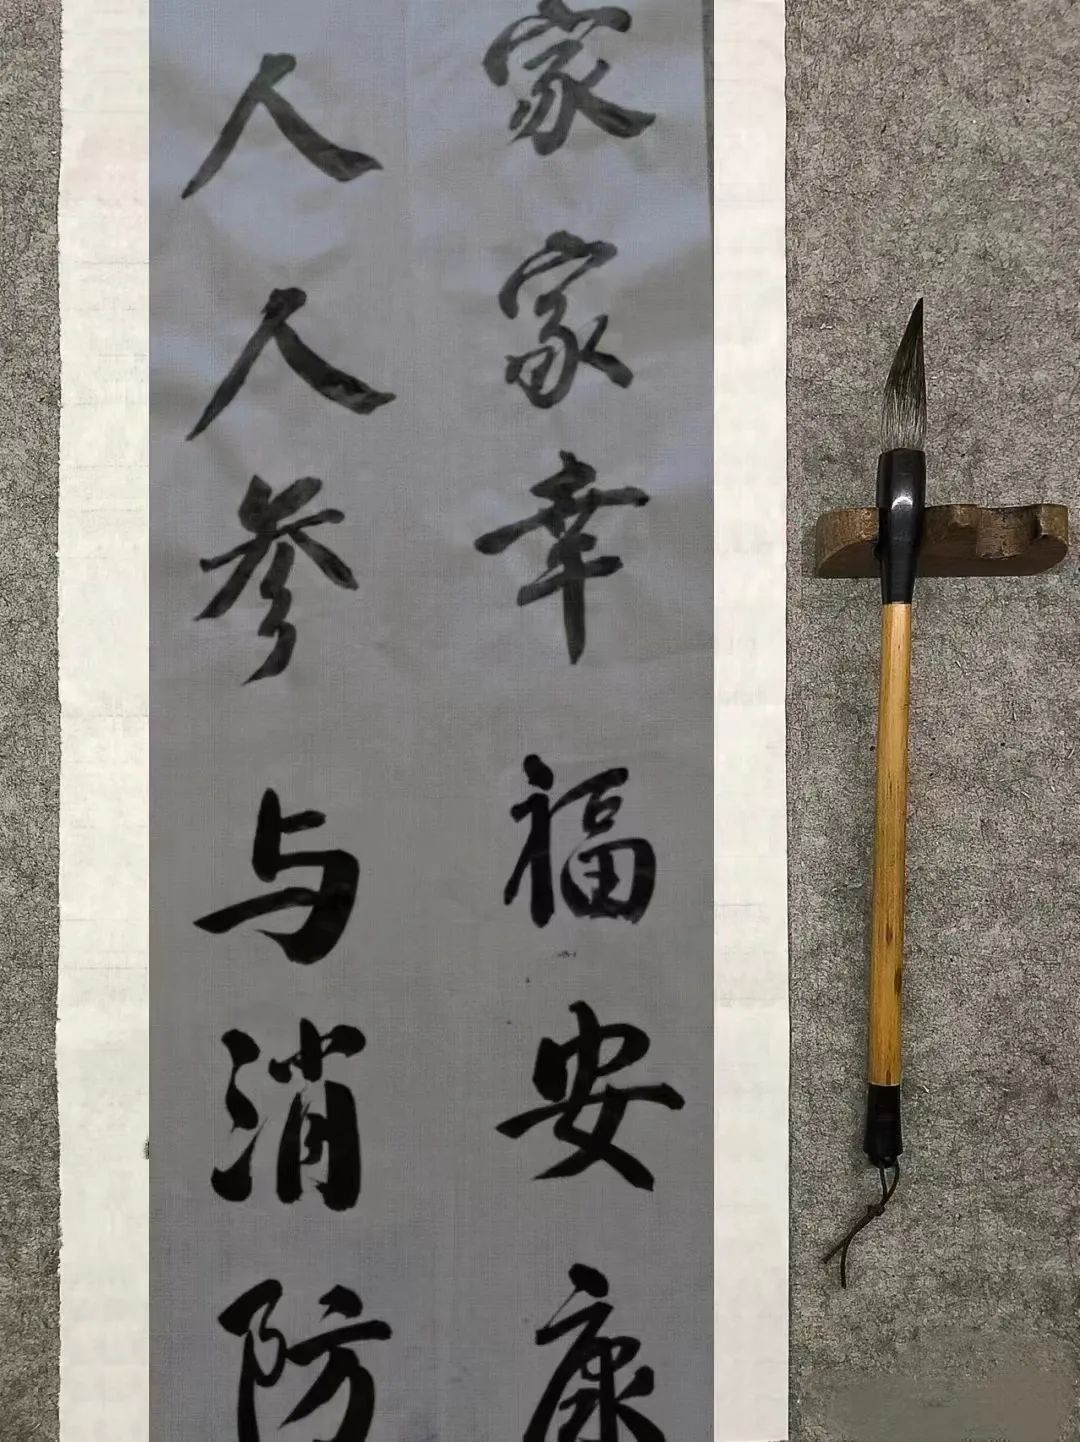 家家幸福安康
人人参与消防